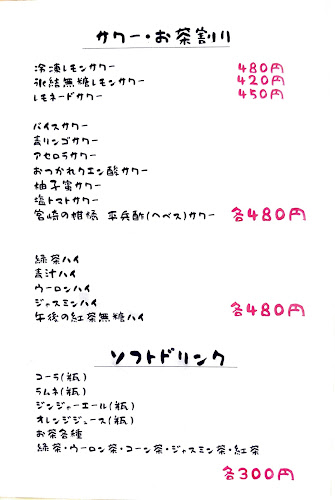 サワー・お茶割り
冷凍レモンサワー 480円
氷結無糖レモンサワー 420円
レモネードサワー 450円
バイスサワー
青リンゴサワー
アセロラサワー
おつかれクエン酸サワー
柚子蜜サワー
塩トマトサワー
宮崎の柑橘 平兵酢(ヘベス)サワー 各480円
緑茶ハイ
青汁ハイ
ウーロンハイ
ジャスミンハイ
午後の紅茶無糖ハイ 各480円
ソフトドリンク
コーラ(瓶)
ラムネ(瓶)
ジンジャーエール(瓶)
オレンジジュース(瓶)
お茶各種
緑茶・ウーロン茶・コーン茶・ジャスミン茶・紅茶
各300円